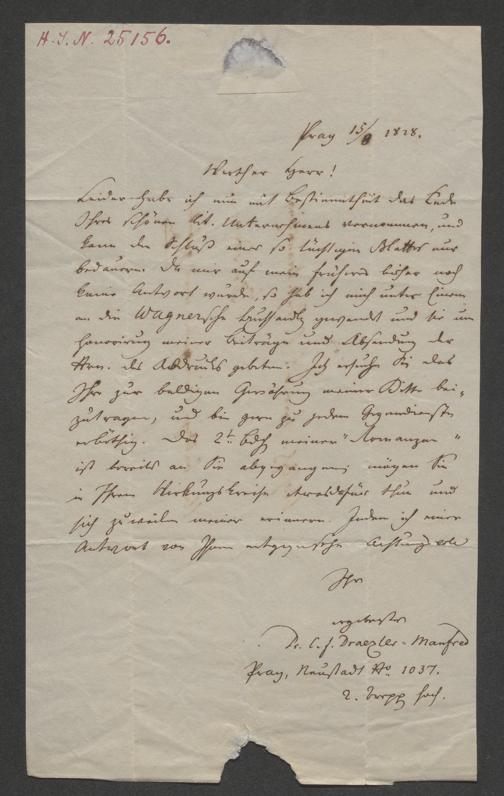 H.I.N. 25156.
Prag 15/8 1828.
Werther Herr!
Leider habe ich nun mit Bestimmtheit das Ende
Ihres schönen lit. Unternehmens vernommen, und
kann den Schluß eines so tüchtigen Blattes nur
bedauern. Da mir auf mein früheres bisher noch
keine Antwort wurde, so hab ich mich unter Einem
an die Wagnersche Buchhandlg gewendet und sie um
Honorirung meiner Beiträge und Absendung der
des Abdrucks gebeten. Ich ersuche Sie das
Ihre zur baldigen Gewährung meiner Bitte bei-
zutragen, und bin gern zu jedem Gegendienste
erböthig. Das 2t. Bdch meiner "Romanzen"
ist bereits an Sie abgegangen; mögen Sie
in Ihrem Wirkungskreise etwas dafür thun und
sich zuweilen meiner erinnern. Indem ich einer
Antwort von Ihnen entgegensehe Achtungsvoll
Ihr
ergebenster
Dr. C. F. Draexler-Manfred
Prag, Neustadt No. 1037.
2. Trepp hoch.